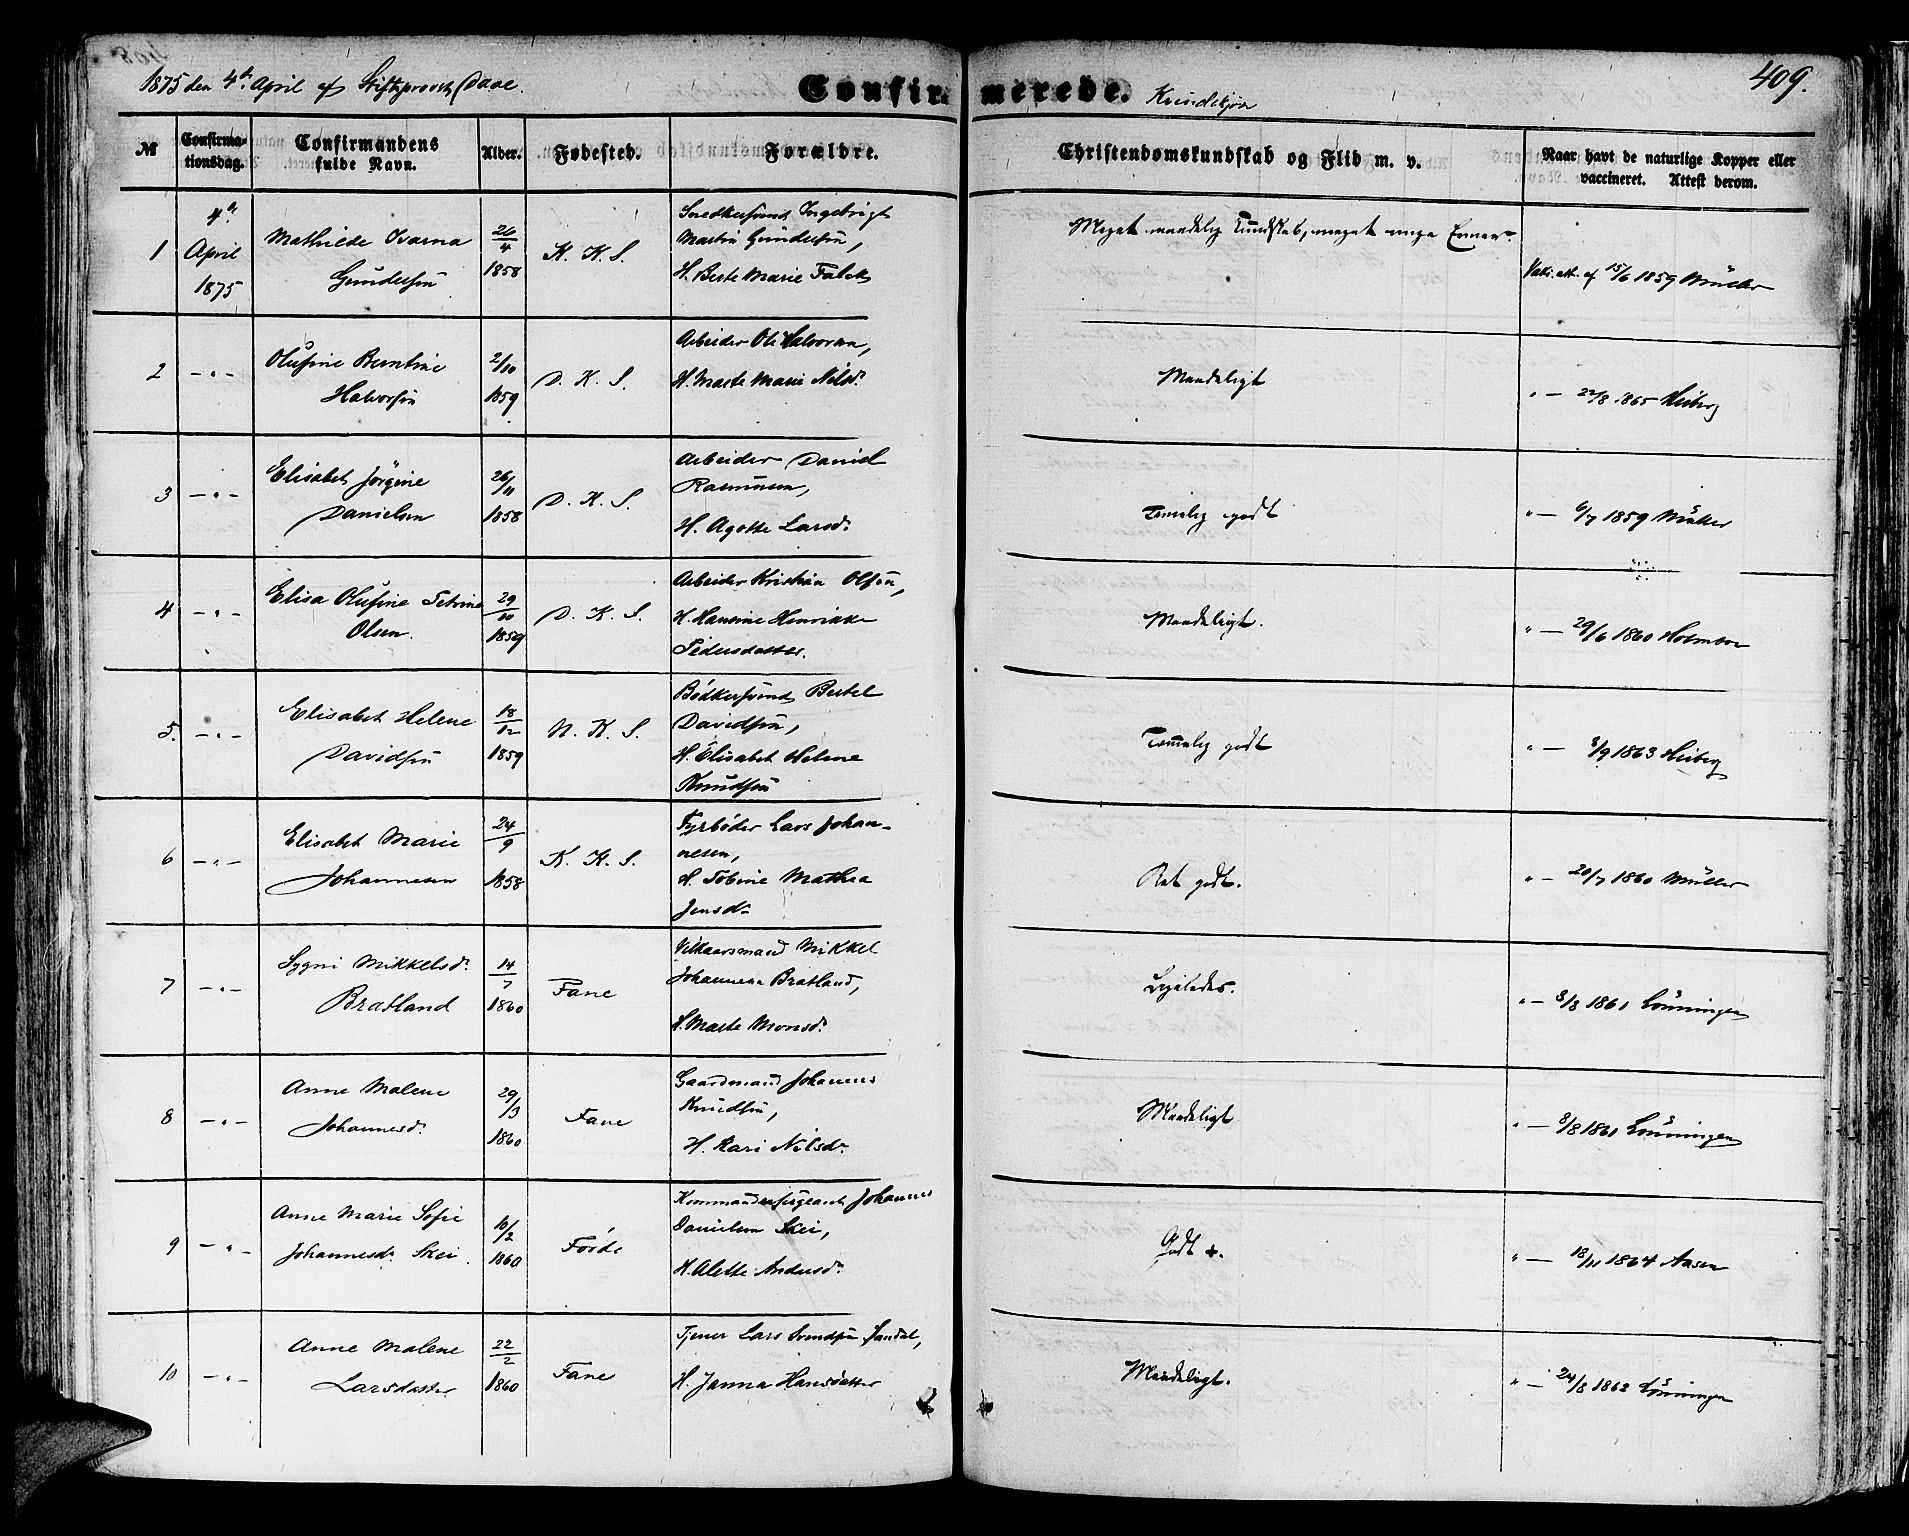 1875 den 4de April af Stiftsprovst Daae.
Confirmerede.
Kvindekjøn
409.
№
Confirmationsdag.
Confirmandens fulde Navn.
Alder.
Fødested.
Forældre.
Christendomskundskab og Flid m. v.
Naar havt de naturlige Kopper eller vaccineret. Attest derom.
1
4de April 1875
Mathilde Ivarna
Gundersøn
26/4 1858
K. K. S.
Snedkersvend Ingebrigt
Martin Gundersøn,
H. Berte Marie Falck
Meget maadelig Kundskab, meget
Vakc. att. af 15/6 1859 Müller
2
-"-
Olufine Berntine
Halvorsøn
2/10 1859
D. K. S.
Arbeider Ole Halvorsen,
H. Marte Marie Nilsdr
Maadeligt
" — 22/8 1865 Heiberg
3
-"-
Elisabet Jørgine
Danielsen
26/11 1858
D. K. S.
Arbeider Daniel
Rasmussen,
H. Agotte Larsdr
Temmelig godt
" — 6/7 1859 Müller
4
-"-
Elisa Olufine Petrine
Olsen.
29/10 1859
D. K. S.
Arbeider Kristian Olsøn,
H. Hansine Henrikke
Pedersdatter.
Maadeligt.
" — 29/6 1860 Holmboe
5.
-"-
Elisabet Helene
Davidsøn
18/12 1859
N. K. S.
Bødkersvend Bertel
Davidsøn,
H. Elisabet Helene
Knudsøn
Temmelig godt
" — 3/9 1863 Heiberg
6
-"-
Elisabet Marie
Johannesen
24/9 1858
K. K. S.
Fyrbøder Lars Johan-
nesen,
H. Tobine Mathea
Jensdr
Ret godt.
" — 20/7 1860 Müller
7
-"-
Sygni Mikkelsdr
Bratland
14/7 1860
Fane
Vilkaarsmand Mikkel
Johannesen Bratland,
H. Marte Monsdr
Ligeledes.
" — 8/8 1861 Lønningen
8
-"-
Anne Malene
Johannesdr
29/3 1860
Fane
Gaardmand Johannes
Knudsøn,
H. Kari Nilsdr
Maadeligt
" — 8/8 1861 Lønningen
9
-"-
Anne Marie Sofie
Johannesdr Skei
10/2 1860
Førde
Kommandersergeant Johannes
Danielsen Skei,
H. Alette Andersdr
Godt +.
" — 18/11 1864 Aasen
10
-"-
Anne Malene
Larsdatter
22/2 1860
Fane
Tjener Lars Svendsøn Sandal,
H. Janna Hansdatter
Maadeligt.
" — 24/8 1862 Lønningen